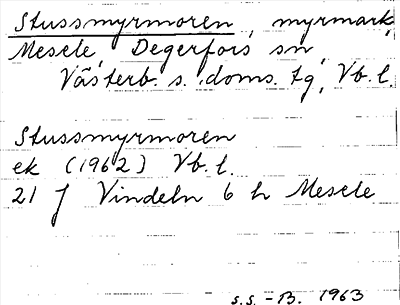 Stussmyrmoren, myrmark,
Mesele, Degerfors sn,
Västerb. s. doms. tg, Vb. l.
Stussmyrmoren
ek (1962) Vb. l.
21 J Vindeln 6 h Mesele
s.s. - B. 1963